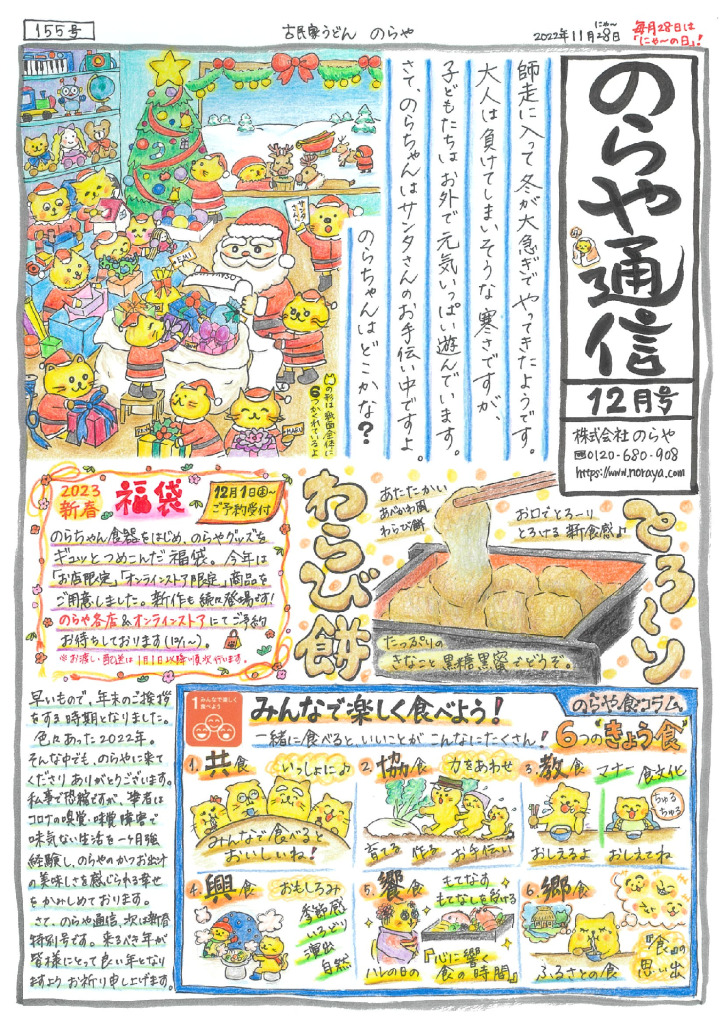 155号
古民家うどん のらや
2022年11月28日
にゃ〜
毎月28日は
「にゃ〜の日」!
のらや通信
12月号
株式会社 のらや
☎0120-680-908
https://www.noraya.com
師走に入って冬が大急ぎでやってきたようです。
大人は負けてしまいそうな寒さですが、
子どもたちはお外で元気いっぱい遊んでいます。
さて、のらちゃんはサンタさんのお手伝い中ですよ。
のらちゃんはどこかな?
の形は紙面全体に
6つかくれているよ
EMI
MARU
2023
新春
福袋
12月1日㊍〜
ご予約受付
のらちゃん食器をはじめ、のらやグッズを
ギュッとつめこんだ福袋。今年は
「お店限定」「オンラインストア限定」商品をご
用意しました。新作も続々登場です!
のらや各店&オンラインストアにてご予約
お待ちしております(12/1〜)。
※お渡し・配送は1月1日以降順次行います。
とろ〜り
わらび餅
あたたかい
あべかわ風
わらび餅
お口でとろーり
とろける新食感♪
たっぷりの
きなこと黒糖黒蜜でどうぞ。
早いもので、年末のご挨拶
をする時期となりました。
色々あった2022年。
そんな中でも、のらやに来て
くださりありがとうございます。
私事で恐縮ですが、筆者は
コロナの嗅覚・味覚障害で
味気ない生活を一ヶ月強
経験し、のらやのかつお出汁
の美味しさを感じられる幸せ
をかみしめております。
さて、のらや通信、次は新春
特別号です。来るべき年が
皆様にとって良い年となり
ますよう お祈り申し上げます。
1 みんなで楽しく
食べよう
みんなで楽しく食べよう!
一緒に食べると、いいことがこんなにたくさん!
のらや食コラム
6つの"きょう食"
1. 共食 いっしょに♪
みんなで食べると
おいしいね!
2. 協食 力をあわせ
育てる 作る お手伝い
3. 教食 マナー 食文化
ちゅる
ちゅる
おしえるよ
おしえてね
4. 興食 おもしろみ
季節感
いろどり
演出
自然
5. 饗食 もてなす
もてなしを受ける
ハレの日の
『心に響く
食の時間』
6. 郷食
ふるさとの食
『食』の
思い出